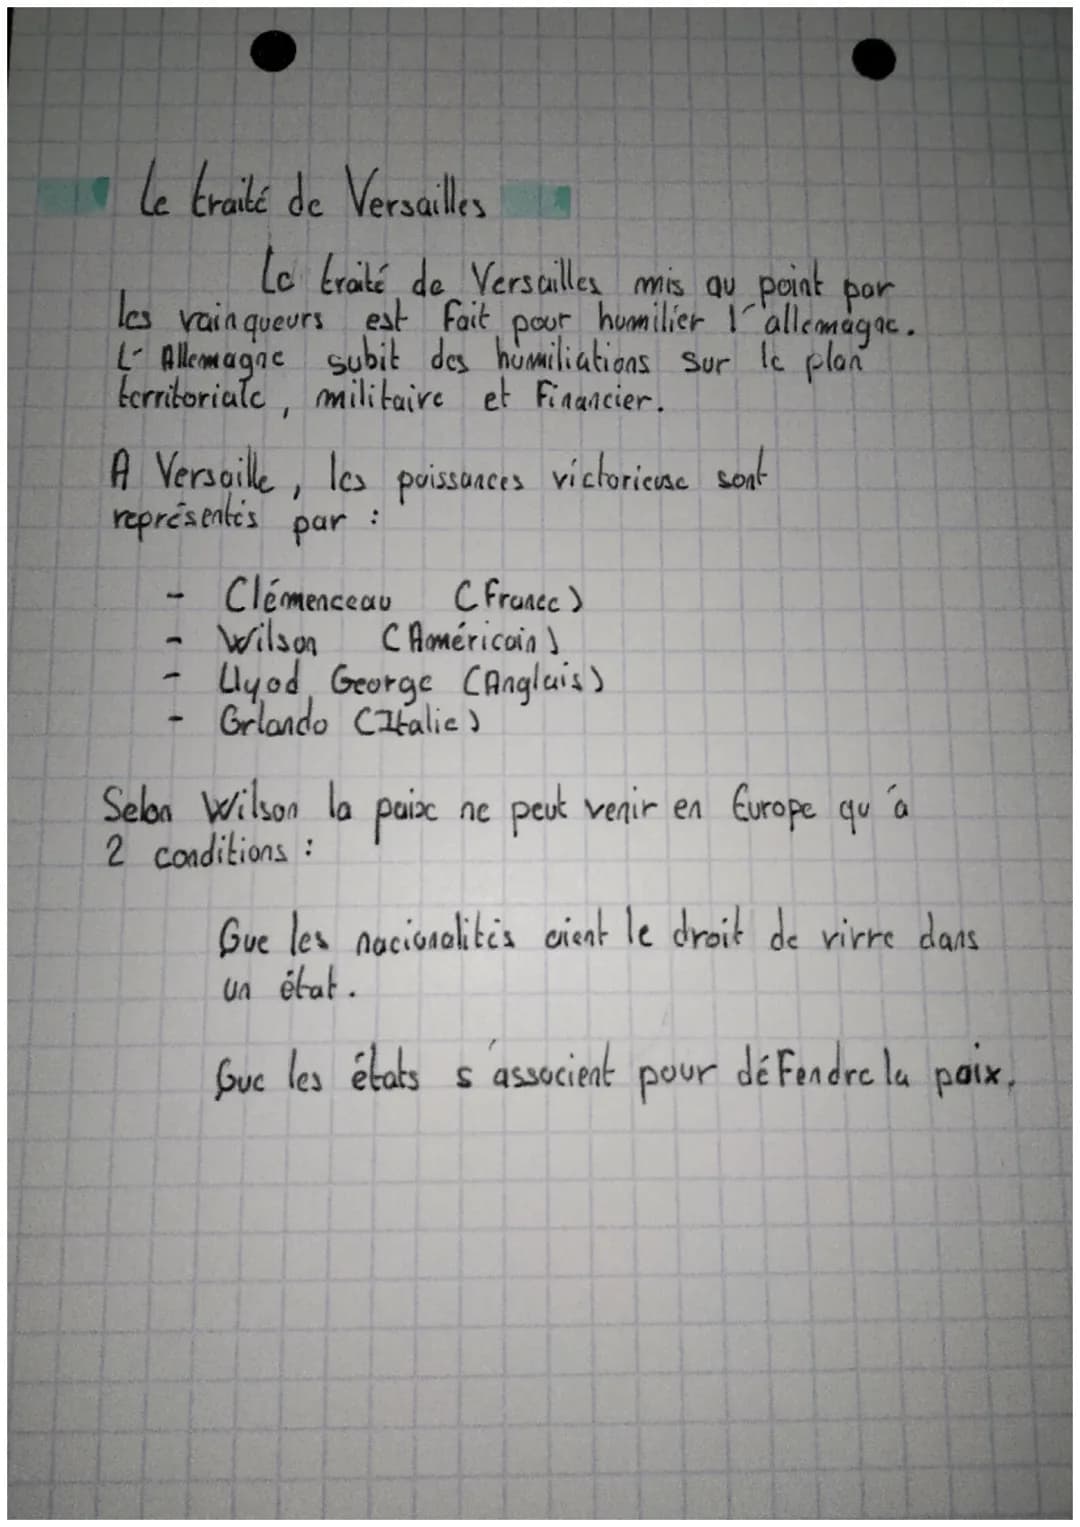 Le traité de Versailles
Le traité de Versailles mis au point par
les vainqueurs est fait pour humilier l'allemagne.
L'Allemagne subit des humiliations sur le plan
territoriale, militaire et financier.
A Versaille, les puissances victorieuse sont
représentés par :
- Clémenceau (France)
- Wilson (Américain)
- Llyod George (Anglais)
- Orlando (Italie)
Selon Wilson la paix ne peut venir en Europe qu'à
2 conditions :
Que les nacionalités aient le droit de vivre dans
un état.
Que les états s'associent pour défendre la paix.